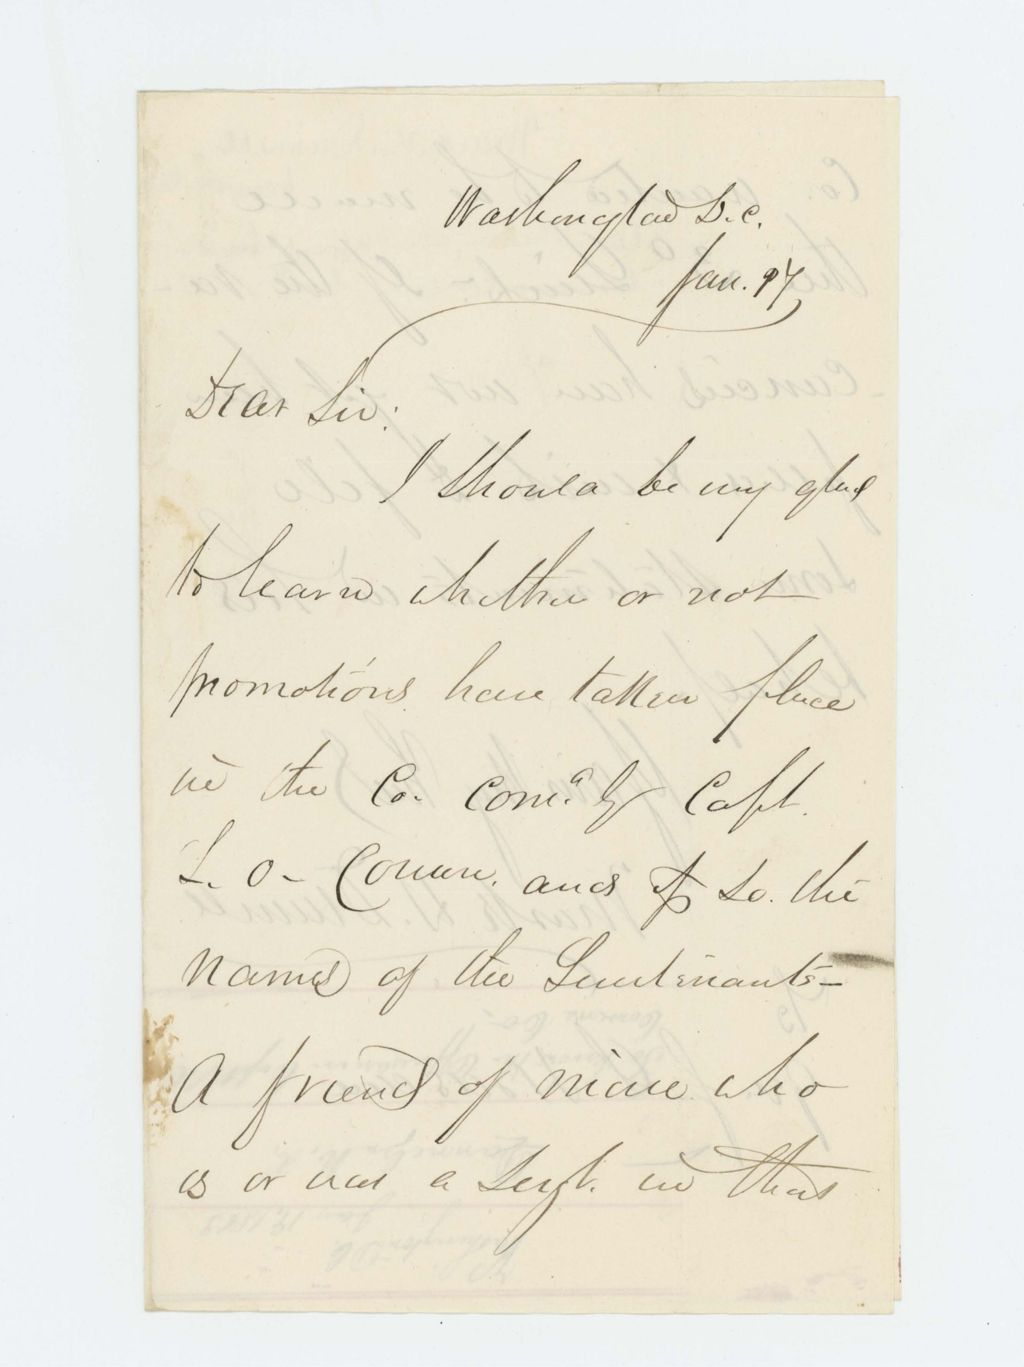 Washington D.C.
Jan. 17
Dear Sir:
I should be very glad
to learn whether or not
promotions have taken place
in the Co. com.d by Capt.
L. O. Cowan. and if so. the
names of the Lieutenants—
A friend of mine who
is or was a Sergt. in that